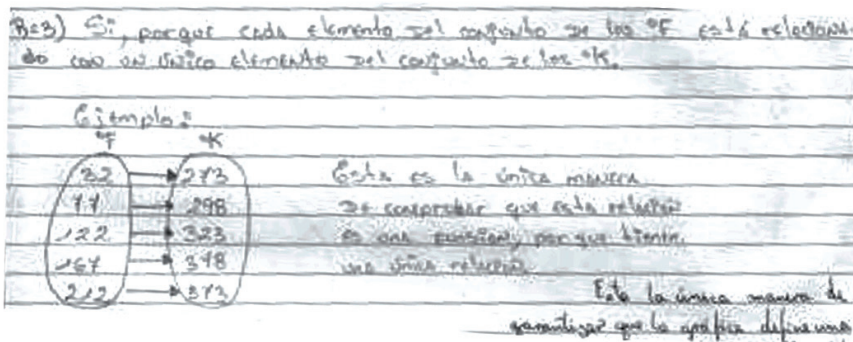 R=3) Si, porque cada elemento del conjunto de los °F está relaciona-
do con un único elemento del conjunto de los °K.
Ejemplo:
°F °K
32 273 Esta es la única manera
77 298 de comprobar que esta relación
122 323 es una funsion, porque tienen
167 348 una única relación
212 373
Esta la única manera de
garantizar que la gráfica define una